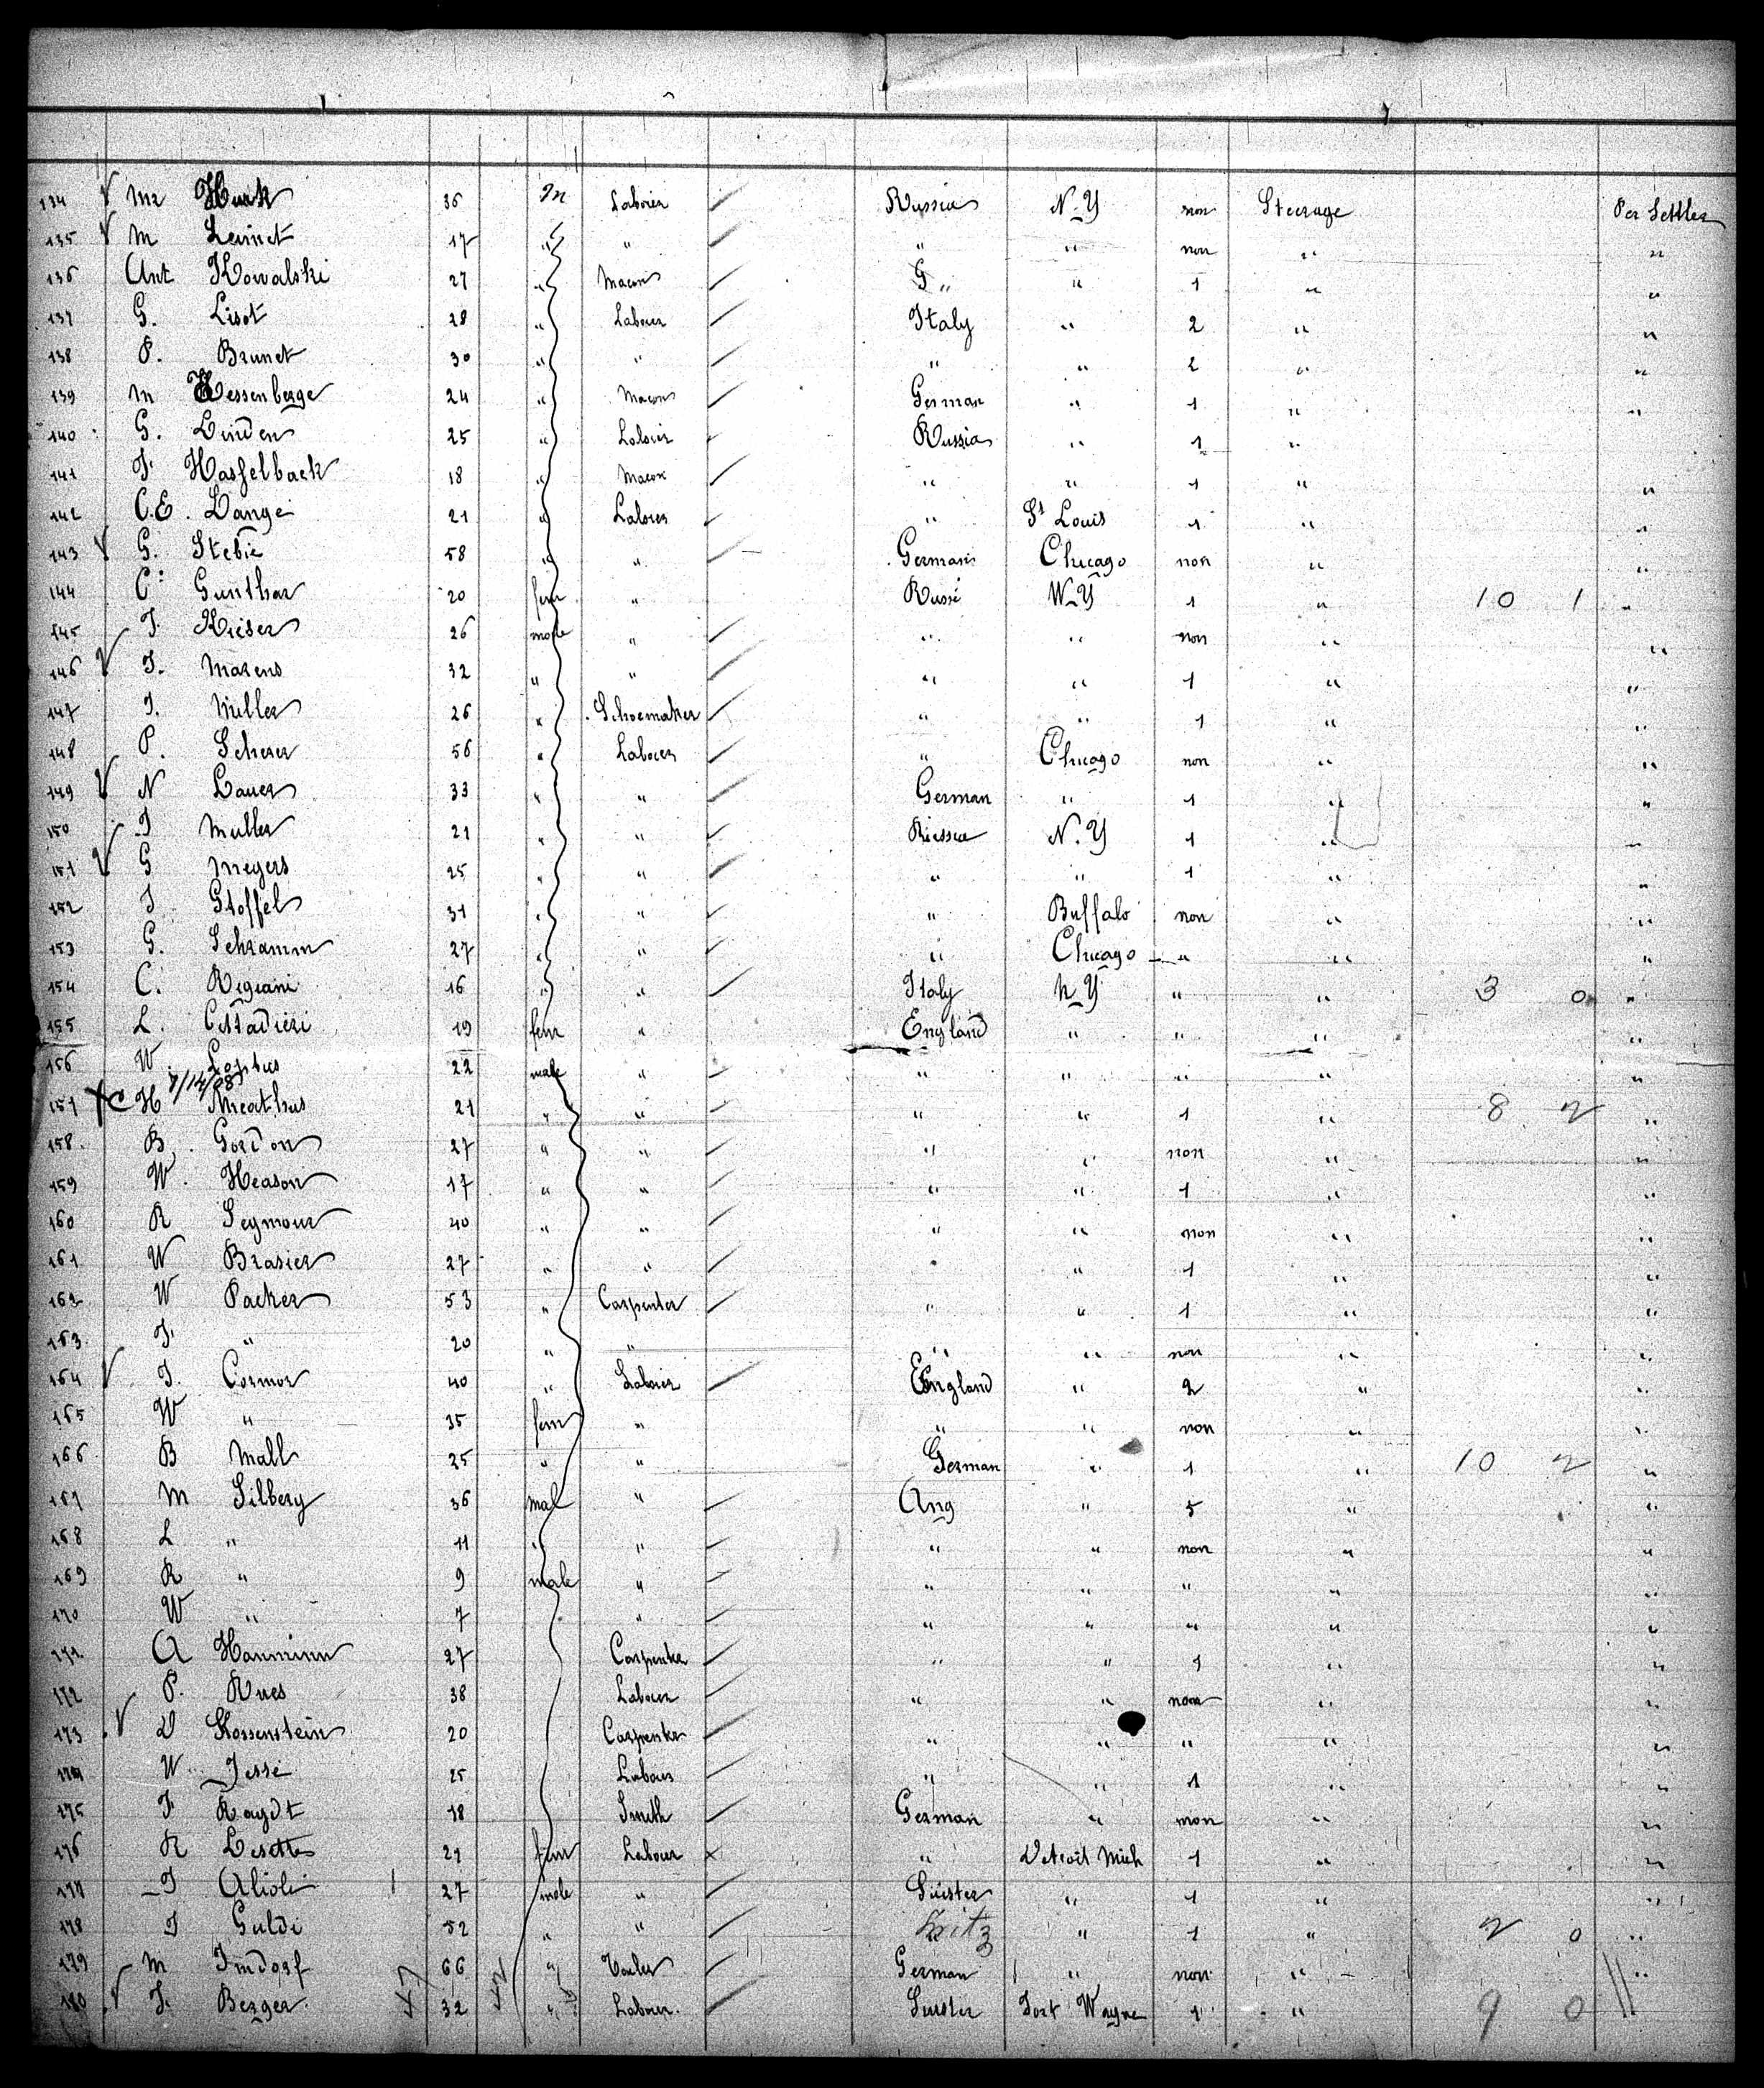 134 Mr Hurk 36 m Laborer Russia N-Y non Steerage Per Settler
135 M 17 " " " " non " "
136 Ant Kowalski 27 " Macon G " " 1 " "
137 G. Lisot 28 " Laborer Italy " 2 " "
138 P. Brunet 30 " " " " 2 " "
139 M Hessenberge 24 " Macon German " 1 " "
140 G. Linden 25 " Laborer Russia " 1 "
141 F. Hasselback 18 " Macon " " 1 " "
142 C.E. Lange 21 " Laborer " St Louis 1 " "
143 G. Stebie 58 " " German Chicago non " "
144 C. Gunthar 20 fem " Russi N-Y 1 " 10 1 "
145 J. Kieser 26 male " " " non " "
146 J. Marens 32 " " " " 1 " "
147 J. Miller 26 " Schoemaker " " 1 " "
148 P. Scherer 56 " Laborer " Chicago non " "
149 N Lauer 33 " " German " 1 " "
150 J Muller 21 " " N.Y 1 " "
151 G Meyers 25 " " " " 1 " "
152 J Stoffel 31 " " " Buffalo non " "
153 G. Schramm 27 " " " Chicago " " "
154 C. Regiani 16 " " Italy N-Y " " 3 0 "
155 L. Cittadieri 19 fem " England " " " "
156 W. 22 male " " " " " "
7/14/08
157 XC H 21 " " " " 1 " 8 2 "
158. B. Gordon 27 " " " " non " "
159 W. Heason 17 " " " " 1 " "
160 R Seymour 40 " " " " non " "
161 W Brasier 27 " " " " 1 " "
162 W Packer 53 " Carpenter " " 1 " "
163. J. " 20 " " " " non " "
164 J. Cormor 40 " Laborer England " 2 " "
165 W " 35 fem " " " non " "
166 B Mall 25 " " German " 1 " 10 2 "
167 M Silberg 36 mal " Ang " 5 " "
168 L " 11 " " " " non " "
169 R " 9 male " " " " " "
170 W " 7 " " " " " "
171 A 27 Carpenter " " 1 " "
172 P. Rues 38 Laborer " " non " "
173 D 20 Carpenter " " " " "
174 W. Jesse 25 Labour " " 1 " "
175 F. Raydt 18 Smith German " non " "
176 R Lisette 21 fem Labour " Detroit Mich 1 " "
177 J Alioli 27 male " Suister " 1 " "
178 J Guldi 52 " " " 1 " 2 0 "
179 M Imdorf 66 " German " non " "
180 J. Berger 47 32 42 " Labour. Suister Fort Wayne 1 " 9 0